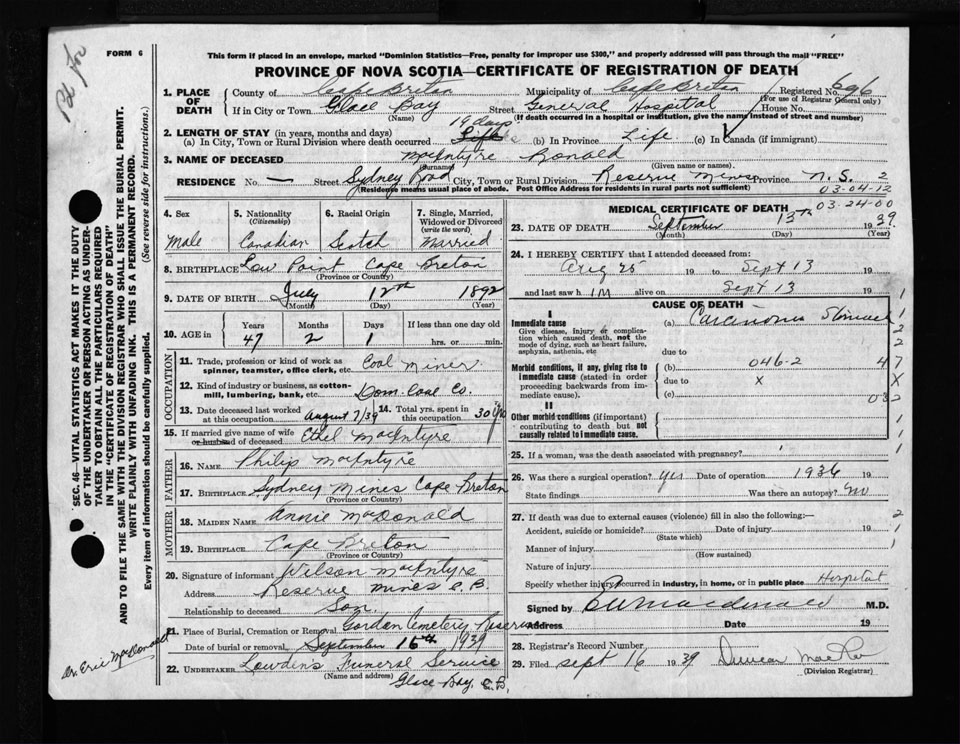 FORM 6
This form if placed in an envelope, marked "Dominion Statistics—Free, penalty for improper use $300," and properly addressed will pass through the mail "FREE"
PROVINCE OF NOVA SCOTIA—CERTIFICATE OF REGISTRATION OF DEATH
1. PLACE OF DEATH County of Cape Breton Municipality of Cape Breton Registered No. 696
(For use of Registrar General only)
If in City or Town Glace Bay Street General Hospital House No.
(Name) (If death occurred in a hospital or institution, give the name instead of street and number)
19 days
2. LENGTH OF STAY (in years, months and days)
(a) In City, Town or Rural Division where death occurred Life (b) In Province Life (c) In Canada (if immigrant)
3. NAME OF DECEASED MacIntyre Ronald
(Surname) (Given name or names)
RESIDENCE No. — Street Sydney Road City, Town or Rural Division Reserve Mines Province N.S. 2
(Residence means usual place of abode. Post Office Address for residents in rural parts not sufficient) 03-04-12
4. Sex
Male
5. Nationality
(Citizenship)
Canadian
6. Racial Origin
Scotch
7. Single, Married, Widowed or Divorced
(write the word)
Married
8. BIRTHPLACE Low Point Cape Breton
(Province or Country)
9. DATE OF BIRTH July 12th 1892
(Month) (Day) (Year)
10. AGE in Years Months Days If less than one day old
47 2 1 hrs. or min.
OCCUPATION
11. Trade, profession or kind of work as spinner, teamster, office clerk, etc. Coal Miner
12. Kind of industry or business, as cotton-mill, lumbering, bank, etc. Dom. Coal Co.
13. Date deceased last worked at this occupation August 7/39 14. Total yrs. spent in this occupation 30 yrs
15. If married give name of wife or husband of deceased Ethel MacIntyre
FATHER
16. Name Philip MacIntyre
17. Birthplace Sydney Mines Cape Breton
(Province or Country)
MOTHER
18. Maiden Name Annie MacDonald
19. Birthplace Cape Breton
(Province or Country)
20. Signature of informant Wilson MacIntyre
Address Reserve Mines C.B.
Relationship to deceased Son
21. Place of Burial, Cremation or Removal Gordon Cemetery Reserve
Date of burial or removal September 15th 1939
22. UNDERTAKER Lowden's Funeral Service
(Name and address) Glace Bay, C.B.
MEDICAL CERTIFICATE OF DEATH 03-24-00
23. DATE OF DEATH September 13th 1939
(Month) (Day) (Year)
24. I HEREBY CERTIFY that I attended deceased from:
Aug 25 19 to Sept 13 19
and last saw him alive on Sept 13 19
CAUSE OF DEATH
I
Immediate cause (a) Carcinoma Stomach
Give disease, injury or complication which caused death, not the mode of dying, such as heart failure, asphyxia, asthenia, etc
due to
Morbid conditions, if any, giving rise to immediate cause (stated in order proceeding backwards from immediate cause). (b) 046-2
due to x
(c)
II
Other morbid conditions (if important) contributing to death but not causally related to immediate cause.
25. If a woman, was the death associated with pregnancy?
26. Was there a surgical operation? Yes Date of operation 1936 19
State findings Was there an autopsy? no
27. If death was due to external causes (violence) fill in also the following:
Accident, suicide or homicide? Date of injury 19
(State which)
Manner of injury
(How sustained)
Nature of injury
Specify whether injury occurred in industry, in home, or in public place Hospital
Signed by E. MacDonald M.D.
Address Date 19
28. Registrar's Record Number
29. Filed Sept 16 1939
(Division Registrar)
SEC. 46—VITAL STATISTICS ACT MAKES IT THE DUTY
OF THE UNDERTAKER OR PERSON ACTING AS UNDER-
TAKER TO OBTAIN ALL THE PARTICULARS REQUIRED
IN THE "CERTIFICATE OF REGISTRATION OF DEATH"
AND TO FILE THE SAME WITH THE DIVISION REGISTRAR WHO SHALL ISSUE THE BURIAL PERMIT.
WRITE PLAINLY WITH UNFADING INK. THIS IS A PERMANENT RECORD.
Every item of information should be carefully supplied. (See reverse side for instructions.)
Dr. Eric MacDonald